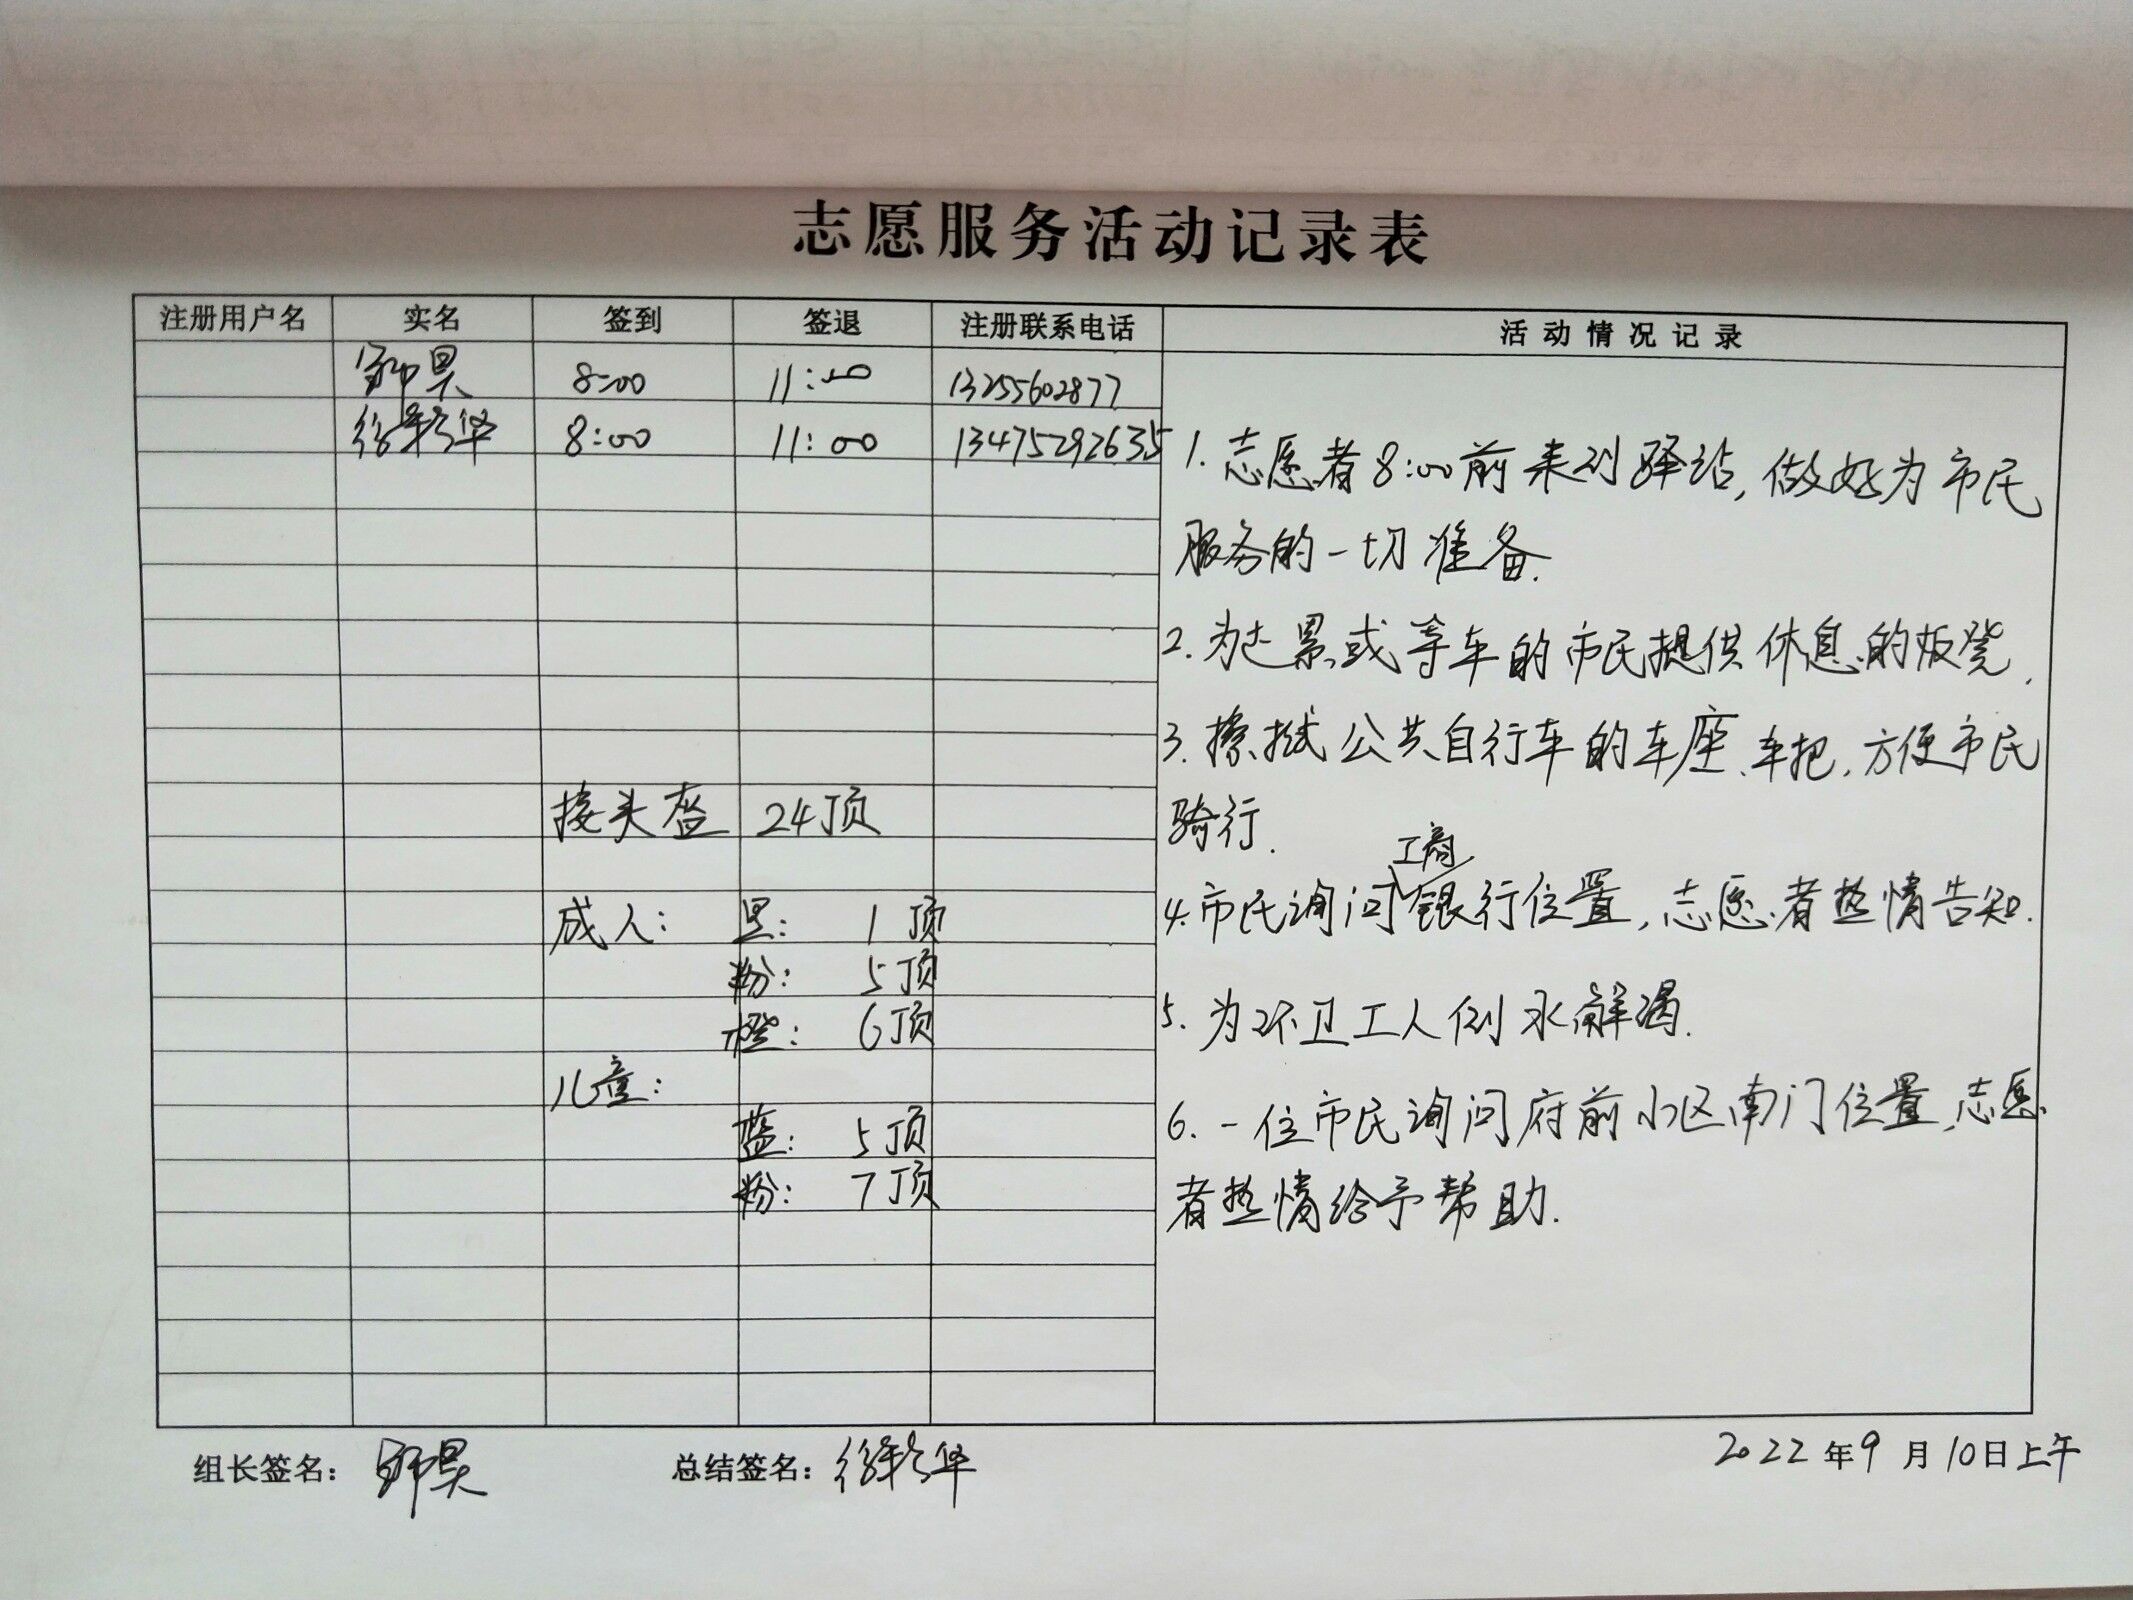 志愿服务活动记录表
注册用户名 实名 签到 签退 注册联系电话 活动情况记录
昊 8:00 11:00 13255602877
徐彩华 8:00 11:00 13475292635
接头盔 24顶
成人: 黑: 1顶
粉: 5顶
橙: 6顶
儿童:
蓝: 5顶
粉: 7顶
1. 志愿者8:00前来到驿站,做好为市民
服务的一切准备.
2. 为走累或等车的市民提供休息的板凳.
3. 擦拭公共自行车的车座、车把,方便市民
骑行.
4. 市民询问工商银行位置,志愿者热情告知.
5. 为环卫工人倒水解渴.
6. 一位市民询问府前小区南门位置,志愿
者热情给予帮助.
组长签名: 昊 总结签名: 徐彩华 2022年9月10日上午